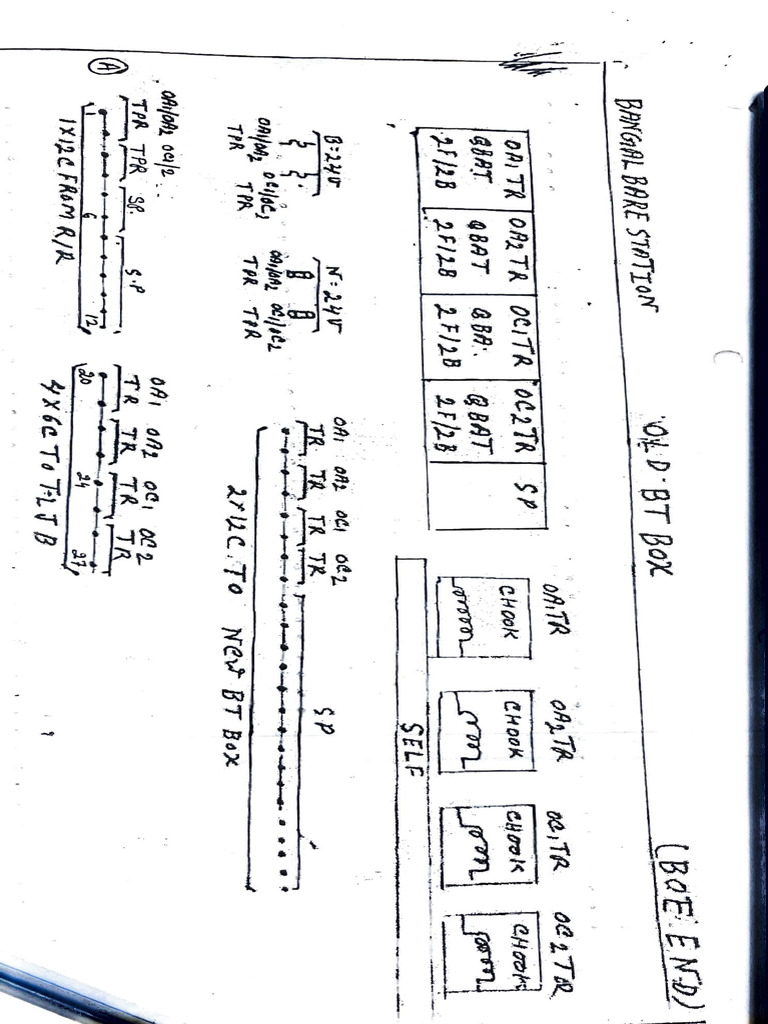 BANGAL BARE STATION OLD-BT BOX (BOE END)
OA1TR OA2TR OC1TR OC2TR SP
QBAT QBAT QBA. QBAT
2F/2B 2F/2B 2F/2B 2F/2B
OA1TR OA2TR OC1TR OC2TR
CHOOK CHOOK CHOOK CHOOK
SELF
B=24V N=24V
OA1/OA2 OC1/OC2 OA1/OA2 OC1/OC2
TPR TPR TPR TPR
OA1 OA2 OC1 OC2
TR TR TR TR SP
2X12C TO NEW BT BOX
A
OA1/OA2 OC1/2
TPR TPR SP. S.P
1 6 12
1X12C FROM R/R
OA1 OA2 OC1 OC2
TR TR TR TR
20 24 27
4X6C TO T-LJB